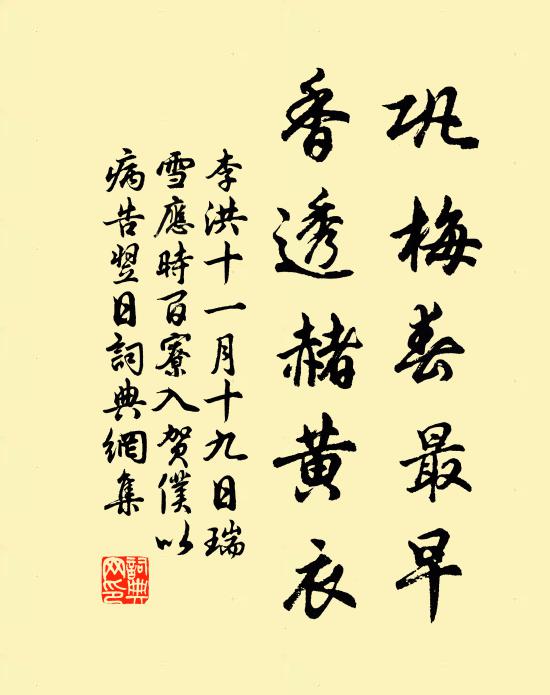 巩梅春最早
香透赭黄衣
李洪十一月十九日瑞
雪應時百寮入贺僕以
病告翌日詞典網集
詞典网印